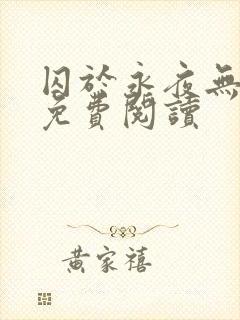 囚於永夜無
免費閱讀
黃家禧